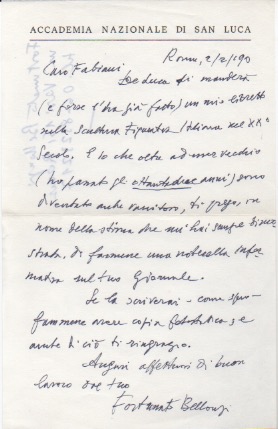 ACCADEMIA NAZIONALE DI SAN LUCA
Roma, 2/2/190
Caro Fabiani
De Luca ti manderà
(e forse l'ha già fatto) un mio libretto
sulla Scultura Figurativa Italiana nel XX°
Secolo. E io che oltre ad essere vecchio
(ho passato gli ottantadue anni) sono
diventato anche vanitoso, ti prego, in
nome della stima che mi hai sempre dimo
strata, di farmene una noterella infor
mativa sul tuo Giornale.
Se la scriverai - come spero -
fammene avere copia fotostatica, e
anche di ciò ti ringrazio.
Auguri affettuosi di buon
lavoro dal tuo
Fortunato Bellonzi